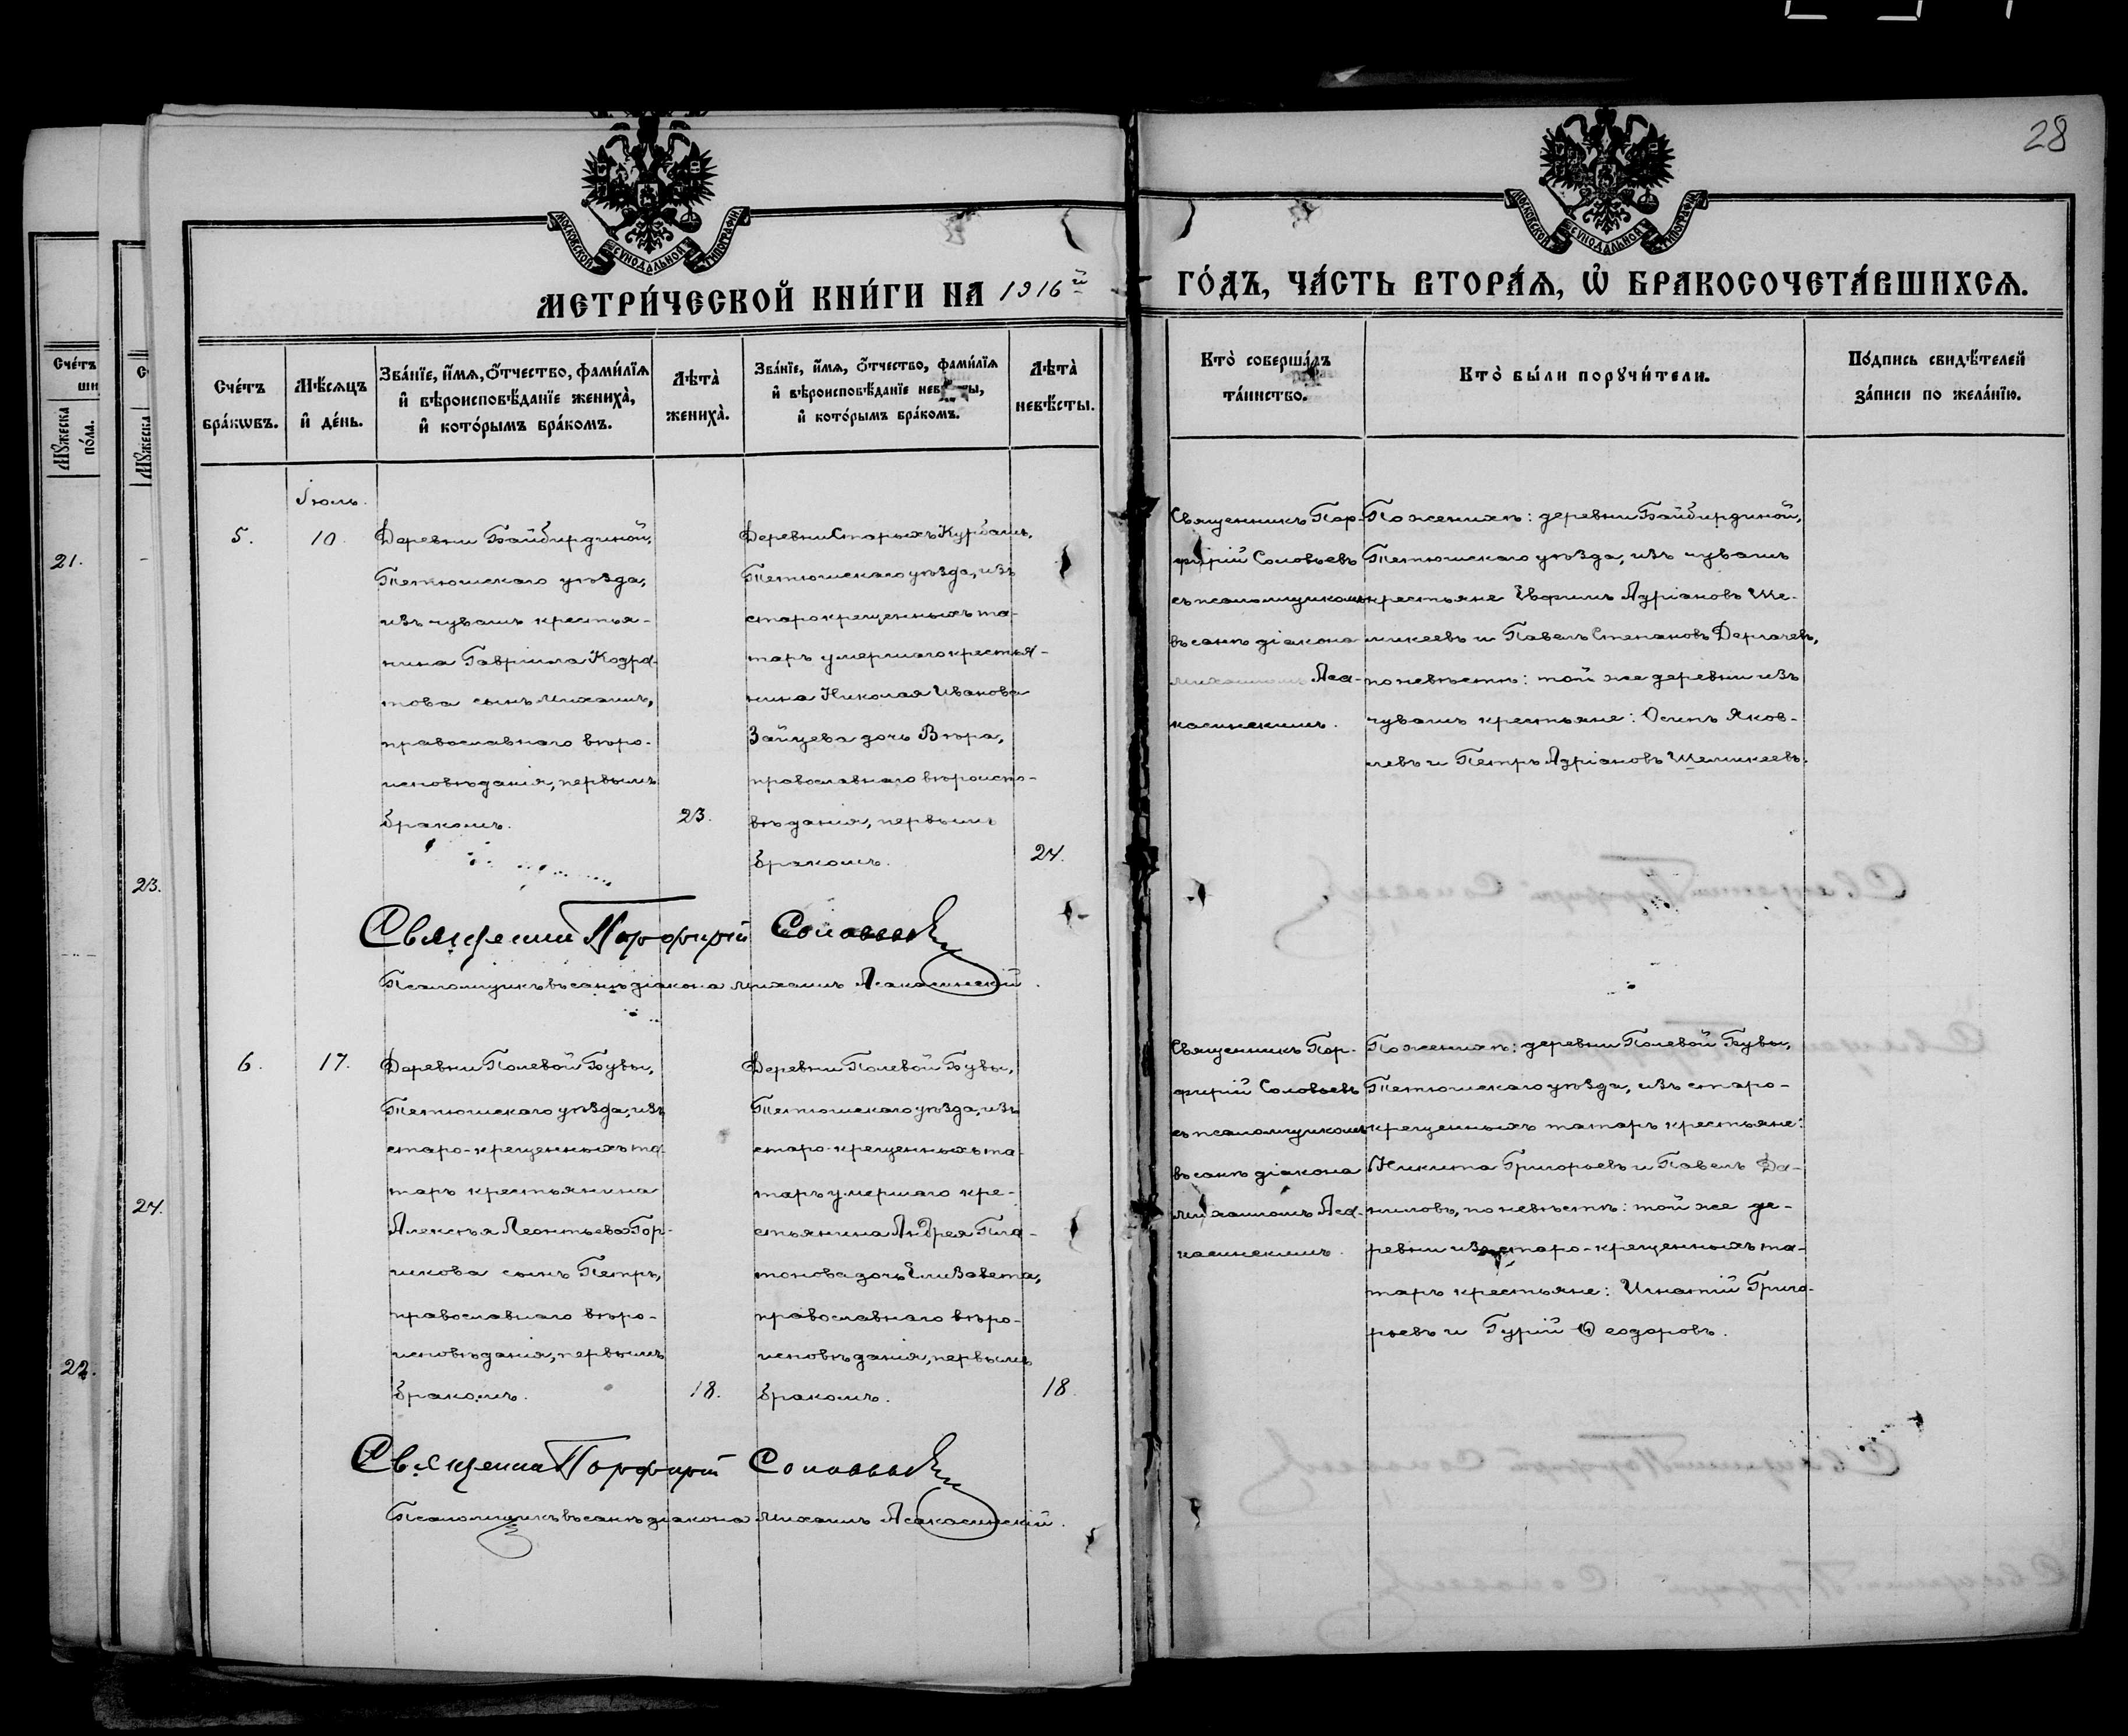 28
МОСКОВСКОЙ СУНОДАЛЬНОЙ ТИПОГРАФІИ
МОСКОВСКОЙ СУНОДАЛЬНОЙ ТИПОГРАФІИ
МЕТРИ́ЧЕСКОЙ КНИ́ГИ НА 1916й
ГО́ДЪ, ЧА́СТЬ ВТОРА́Ѧ, Ѽ БРАКОСОЧЕТА́ВШИХСѦ.
Сче́тъ бра́кѡвъ.
Мѣ́сяцъ и҆ де́нь.
Зва́нїе, и҆́мѧ, ѻ҆́тчество, фами́лїѧ
и҆ вѣроисповѣ́данїе жениха̀,
и҆ кото́рымъ бра́комъ.
Лѣта̀ жениха̀.
Зва́нїе, и҆́мѧ, ѻ҆́тчество, фами́лїѧ
и҆ вѣроисповѣ́данїе невѣсты,
и҆ кото́рымъ бра́комъ.
Лѣта̀ невѣ́сты.
Кто̀ соверша́лъ та́инство.
Кто̀ бы́ли порꙋчи́тели.
По́дпись свидѣ́телей за́писи по жела́нїю.
Іюль.
5.
10.
Деревни Байбирдиной,
Тетюшскаго уѣзда,
изъ чувашъ крестья-
нина Гавріила Кодра-
това сынъ Михаилъ,
православнаго вѣро-
исповѣданія, первымъ
бракомъ.
23.
Деревни Старыхъ Курбашъ,
Тетюшскаго уѣзда, изъ
старокрещенныхъ та-
таръ умершаго крестья-
нина Николая Иванова
Зайцева дочь Вѣра,
православнаго вѣроиспо-
вѣданія, первымъ
бракомъ.
24.
Священникъ Пор-
фирій Соловьевъ
съ псаломщикомъ
въ санѣ діакона
Михаиломъ Аса-
касинскимъ.
По женихѣ: деревни Байбирдиной,
Тетюшскаго уѣзда, изъ чувашъ
крестьяне Евфимъ Адріановъ Ше-
микеевъ и Павелъ Степановъ Дергачевъ,
по невѣстѣ: той же деревни изъ
чувашъ крестьяне: Осипъ Яков-
левъ и Петръ Адріановъ Шемикеевъ.
Священникъ Порфирій Соловьевъ
Псаломщикъ въ санѣ діакона Михаилъ Асакасинскій.
6.
17.
Деревни Полевой Бувы,
Тетюшскаго уѣзда, изъ
старо-крещенныхъ та-
таръ крестьянина
Алексѣя Леонтьева Гор-
шкова сынъ Петръ,
православнаго вѣро-
исповѣданія, первымъ
бракомъ.
18.
Деревни Полевой Бувы,
Тетюшскаго уѣзда, изъ
старо-крещенныхъ та-
таръ умершаго кре-
стьянина Андрея Пла-
тонова дочь Елизавета,
православнаго вѣро-
исповѣданія, первымъ
бракомъ.
18.
Священникъ Пор-
фирій Соловьевъ
съ псаломщикомъ
въ санѣ діакона
Михаиломъ Аса-
касинскимъ.
По женихѣ: деревни Полевой Бувы,
Тетюшскаго уѣзда, изъ старо-
крещенныхъ татаръ крестьяне:
Никита Григорьевъ и Павелъ Да-
ниловъ, по невѣстѣ: той же де-
ревни изъ старо-крещенныхъ та-
таръ крестьяне: Игнатій Григо-
рьевъ и Гурій Ѳеодоровъ.
Священникъ Порфирій Соловьевъ
Псаломщикъ въ санѣ діакона Михаилъ Асакасинскій.
Сче́тъ
Мꙋ́жеска по́ла.
21.
22.
Мꙋ́жеска
23.
24.